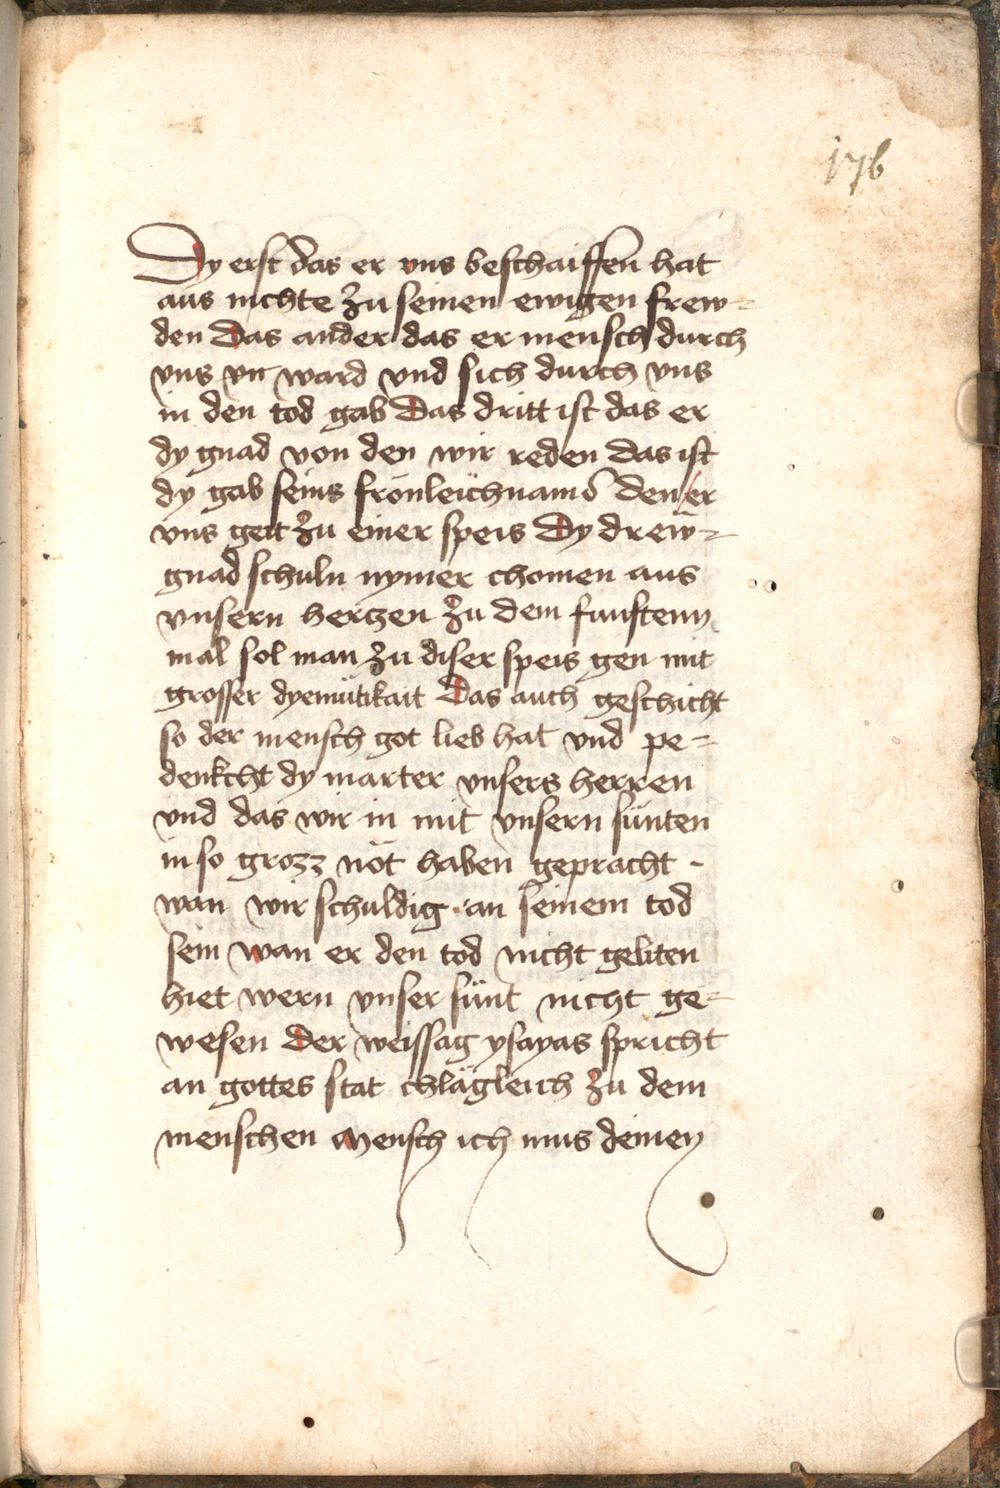 176
Dy erst das er vns beschaiffen hat
aus nichte zu seinen ewigen frew-
den Das ander das er mensch durch
vns vn ward vnd sich durch vns
in den tod gab Das dritt ist das er
dy gnad von den wir reden das ist
dy gab seins fronleichnams den er
vns geit zu einer speis Dy drew-
gnad schuln nymer chomen aus
vnsern hertzen zu dem funftenn
mal sol man zu diser speis gen mit
grosser dyemütikait Das auch geschicht
so der mensch got lieb hat vnd pe-
denkcht dy marter vnsers herren
vnd das wir in mit vnsern sünten
in so grozz nöt haben gepracht -
wan wir schuldig · an seinem tod
sein wan er den tod nicht geliten
hiet wern vnser sünt nicht ge-
wesen der weissag ysayas spricht
an gottes stat chlägleich zu dem
menschen Mensch ich mus deinen